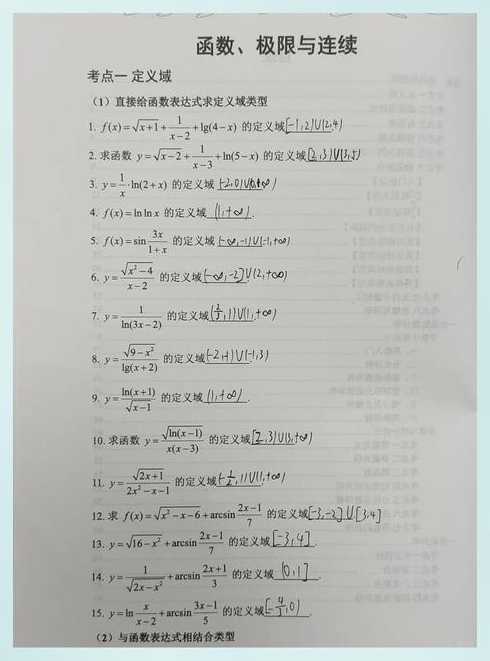 函数、极限与连续
考点一 定义域
（1）直接给函数表达式求定义域类型
1. f(x)=√(x+1)+1/(x−2)+lg(4−x) 的定义域[-1,2)∪(2,4)
2. 求函数 y=√(x−2)+1/(x−3)+ln(5−x) 的定义域[2,3)∪(3,5)
3. y=1/x·ln(2+x) 的定义域(-2,0)∪(0,+∞)
4. f(x)=ln ln x 的定义域(1,+∞).
5. f(x)=sin 3x/(1+x) 的定义域(-∞,-1)∪(-1,+∞)
6. y=√(x²−4)/(x−2) 的定义域(-∞,-2]∪(2,+∞)
7. y=1/ln(3x−2) 的定义域(2/3,1)∪(1,+∞)
8. y=√(9−x²)/lg(x+2) 的定义域(-2,-1)∪(-1,3)
9. y=ln(x+1)/√(x−1) 的定义域(1,+∞).
10. 求函数 y=√(ln(x−1))/(x(x−3)) 的定义域[2,3)∪(3,+∞)
11. y=√(2x+1)/(2x²−x−1) 的定义域(-1/2,1)∪(1,+∞)
12. 求 f(x)=√(x²−x−6)+arcsin (2x−1)/7 的定义域[-3,-2]∪[3,4]
13. y=√(16−x²)+arcsin (2x−1)/7 的定义域[-3,4].
14. y=1/√(2x−x²)+arcsin (2x+1)/3 的定义域(0,1].
15. y=ln x/(x−2)+arcsin (3x−1)/5 的定义域[-4/3,0).
（2）与函数表达式相结合类型